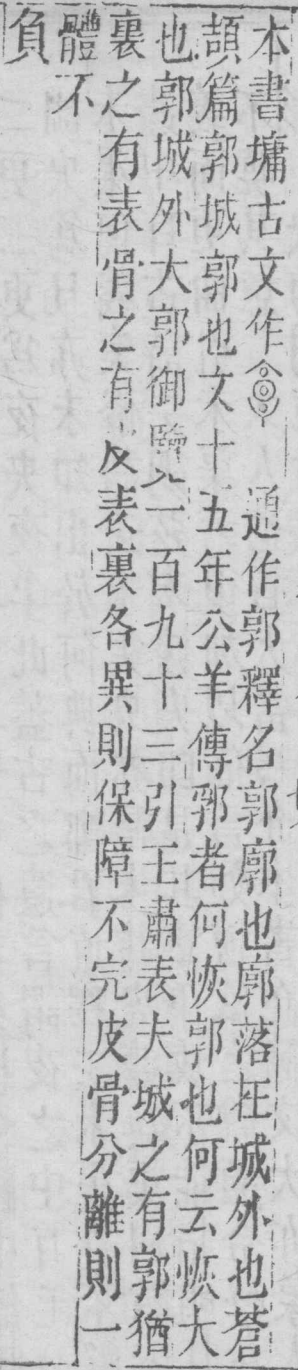 本書墉古文作𩫖通作郭釋名郭廓也廓落在城外也蒼
頡篇郭城郭也文十五年公羊傳郛者何恢郭也何云恢大
也郭城外大郭御覽一百九十三引王肅表夫城之有郭猶
裏之有表骨之有皮表裏各異則保障不完皮骨分離則一
體不
負